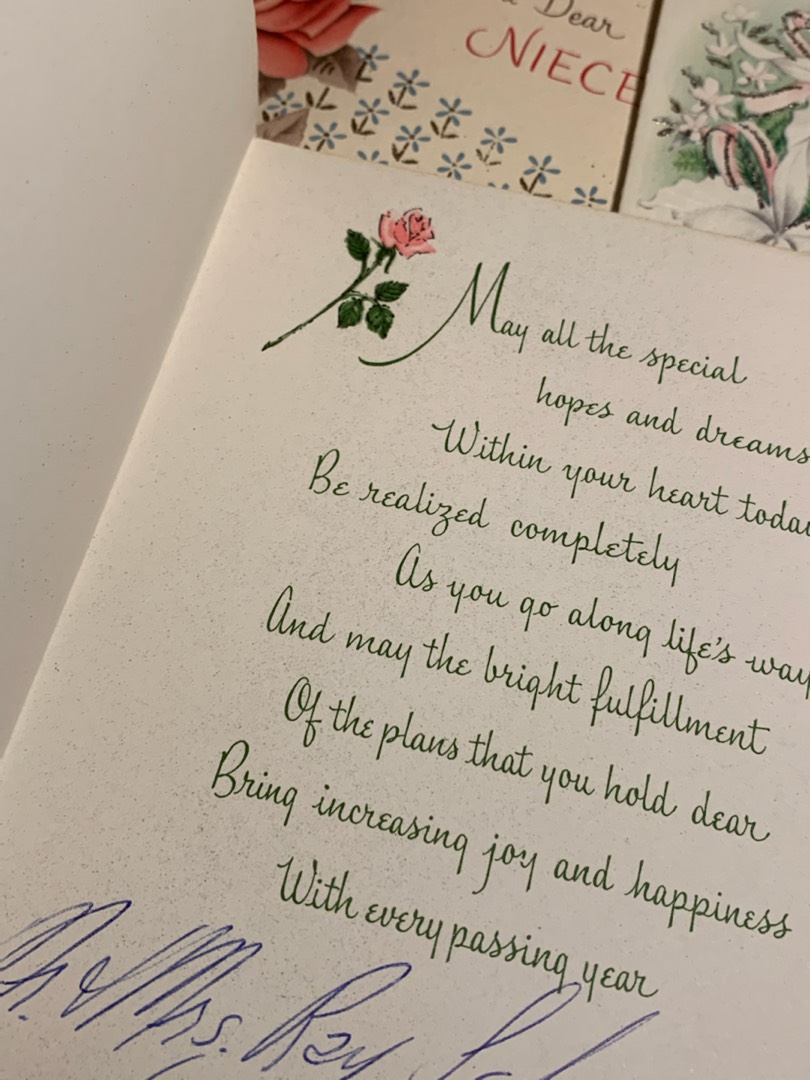 Dear
NIECE
May all the special
hopes and dreams
Within your heart
Be realized completely
As you go along life's way
And may the bright fulfillment
Of the plans that you hold dear
Bring increasing joy and happiness
With every passing year
Mr. & Mrs. Ray